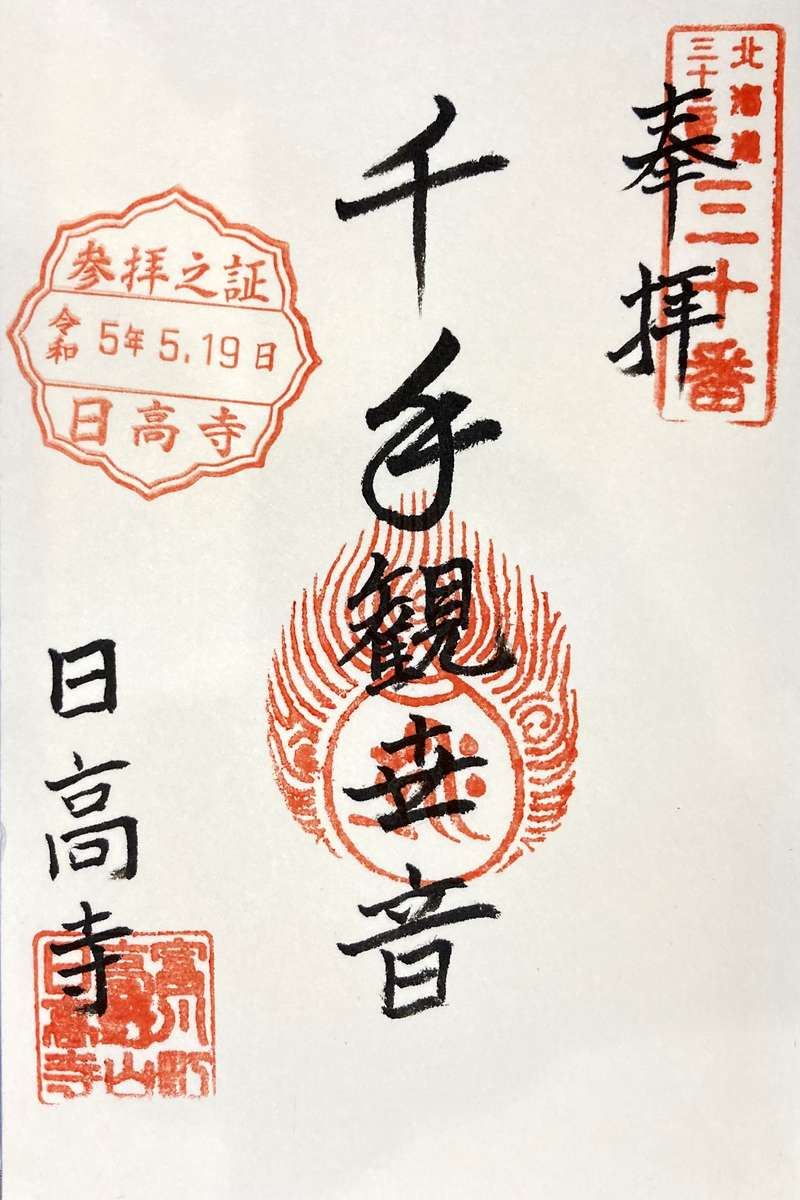 北海道
三十三
三十番
奉拝
千手観世音
参拝之証
令和5年5.19日
日高寺
日高寺
富川町
山
日高寺